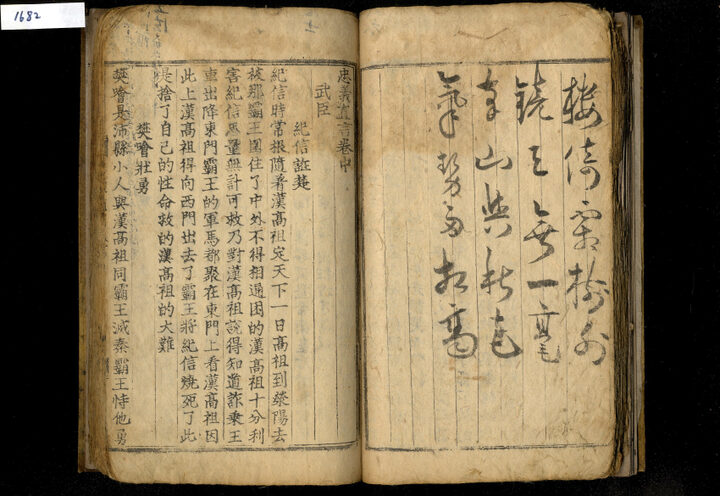 1682
楼倚霜樹外
鏡天無一毫
南山與秋色
氣勢兩相高
忠義直言卷中
武臣
紀信誑楚
紀信時常根隨着漢高祖定天下一日高祖到滎陽去
被那霸王圍住了中外不得相通困的漢高祖十分利
害紀信思量無計可救乃對漢高祖說得知道詐乘王
車出降東門霸王的軍馬都聚在東門上看漢高祖因
此上漢高祖得向西門出去了霸王將紀信燒死了此
是捨了自己的性命救的漢高祖的大難
樊噲壯勇
樊噲是沛縣小人與漢高祖同霸王滅秦霸王恃他勇